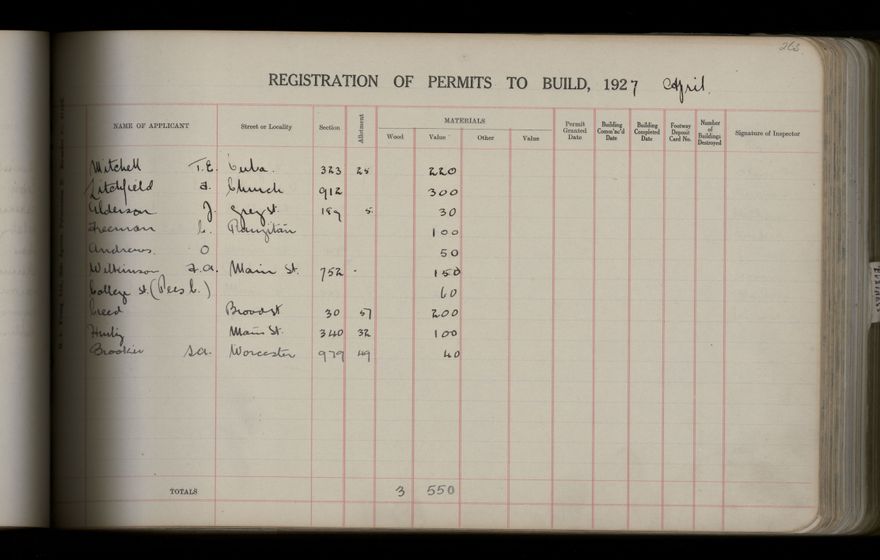 263
REGISTRATION OF PERMITS TO BUILD, 1927 April.
NAME OF APPLICANT Street or Locality Section Allotment MATERIALS Permit Granted Date Building Comm'nc'd Date Building Completed Date Footway Deposit Card No. Number of Buildings Destroyed Signature of Inspector
Wood Value Other Value
Mitchell T.E. Cuba. 323 25 220
Litchfield a. Church 912 300
Alderson J. Grey st. 189 5 30
Freeman C. Rangitau 100
Andrews. O 50
Wilkinson F.a. Main St. 752 - 150
College st. (Rees C.) 60
Creed Broad st 30 57 200
Main St. 340 32 100
Brooker S.a. Worcester 979 49 40
TOTALS 3 550